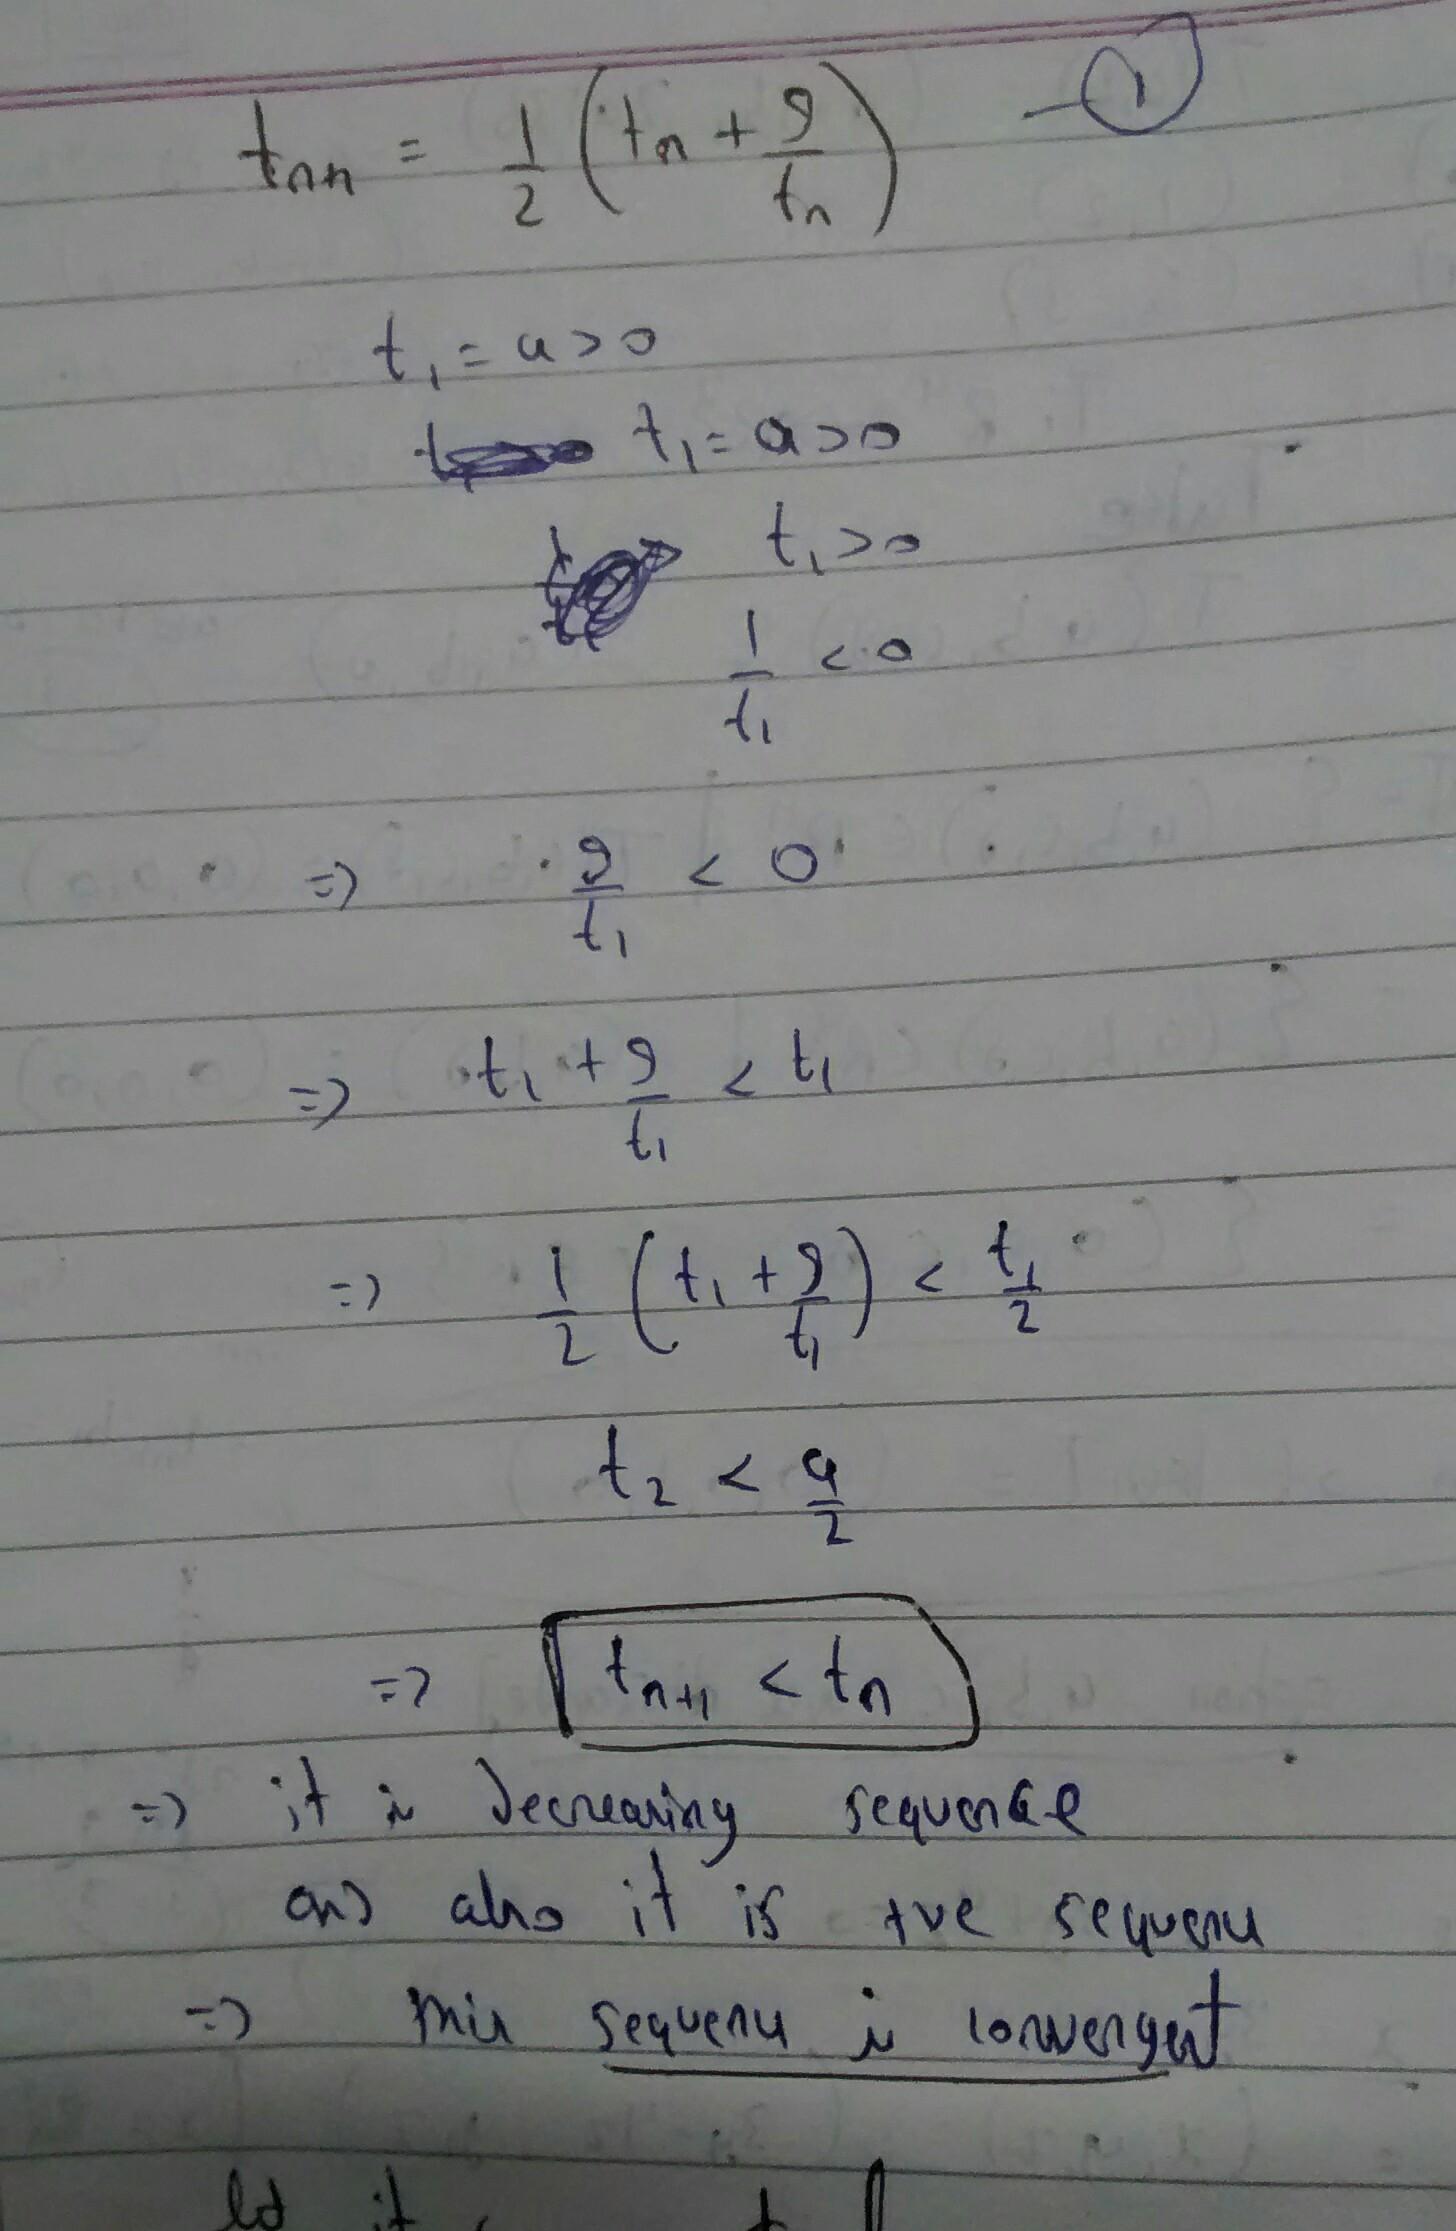 t_{n+1} = 1/2 (t_n + 9/t_n) — ①
t₁ = a > 0
t₁ = a > 0
t₁ > 0
1/t₁ < 0
⇒ 9/t₁ < 0
⇒ t₁ + 9/t₁ < t₁
⇒ 1/2 (t₁ + 9/t₁) < t₁/2
t₂ < a/2
⇒ t_{n+1} < t_n
⇒ it is decreasing sequence
and also it is +ve sequence
⇒ this sequence is convergent
let it